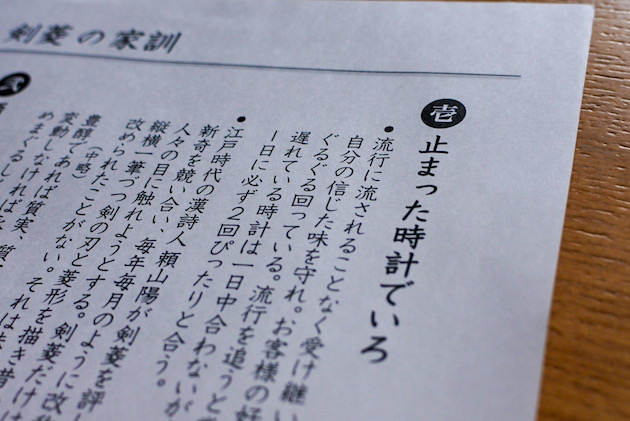 剣菱の家訓
壱 止まった時計でいろ
●流行に流されることなく受け継い
自分の信じた味を守れ。お客様の好
ぐるぐる回っている。流行を追うと
遅れている時計は一日中合わないが
一日に必ず2回ぴったりと合う。
●江戸時代の漢詩人頼山陽が剣菱を評し
新奇を競い合い、毎年毎月のように改
人々の目に触れようとする。剣菱
縦横一筆づつ剣の刃と菱形を描き
改められたことがない。それは
豊醇であれば質実、質
(中略)
変動しなければ
めまぐるし
弐